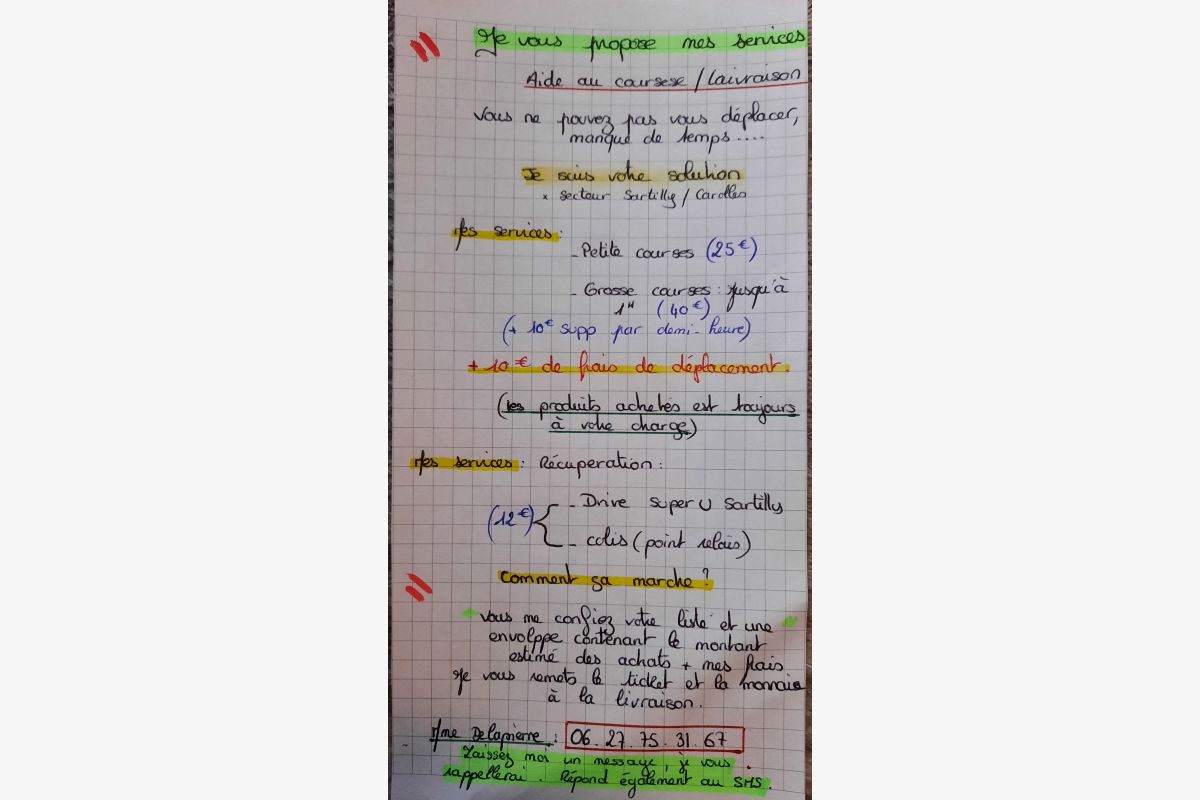 Je vous propose mes services
Aide au coursese / Laivraison
Vous ne pouvez pas vous déplacer,
manque de temps....
Je suis votre solution
x secteur Sartilly / Carolles
Mes services :
- Petite courses (25€)
- Grosse courses : jusqu'à
1H (40€)
(+ 10€ supp par demi-heure)
+ 10 € de frais de déplacement.
(les produits achetés est toujours
à votre charge)
Mes services : Récuperation :
- Drive super U Sartilly
(12€)
- colis (point relais)
Comment ça marche ?
+ vous me confiez votre liste et une +
envolppe contenant le montant
estimé des achats + mes frais
Je vous remets le ticket et la monnaie
à la livraison.
Mme Delapierre : 06.27.75.31.67
Laissez moi un message, je vous
rappellerai. Répond également au SMS.